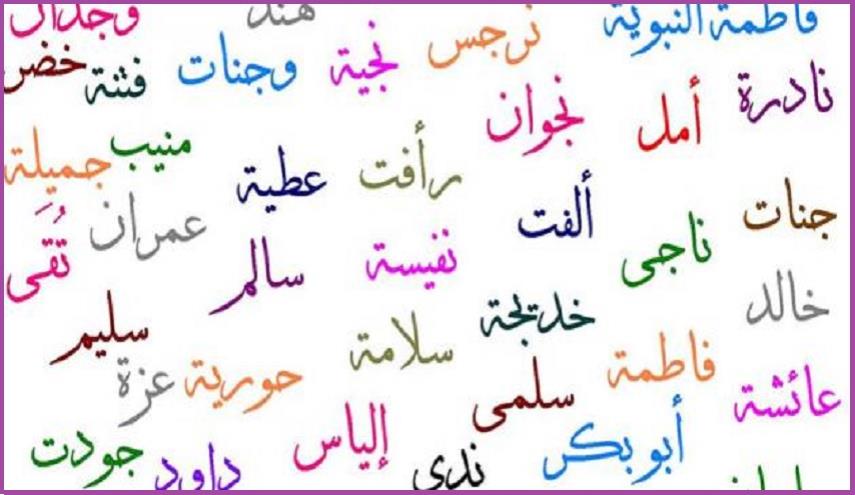 فاطمة النبوية
هند
وجدان
نادرة
أمل
نجوان
نرجس
نجية
وجنات
فتنة
خضر
جنات
ألفت
رأفت
عطية
منيب
جميلة
خالد
ناجى
نفيسة
سالم
عمران
تُقَى
خديجة
سلامة
سليم
عائشة
فاطمة
سلمى
حورية
عزة
أبو بكر
ندى
إلياس
داود
جودت